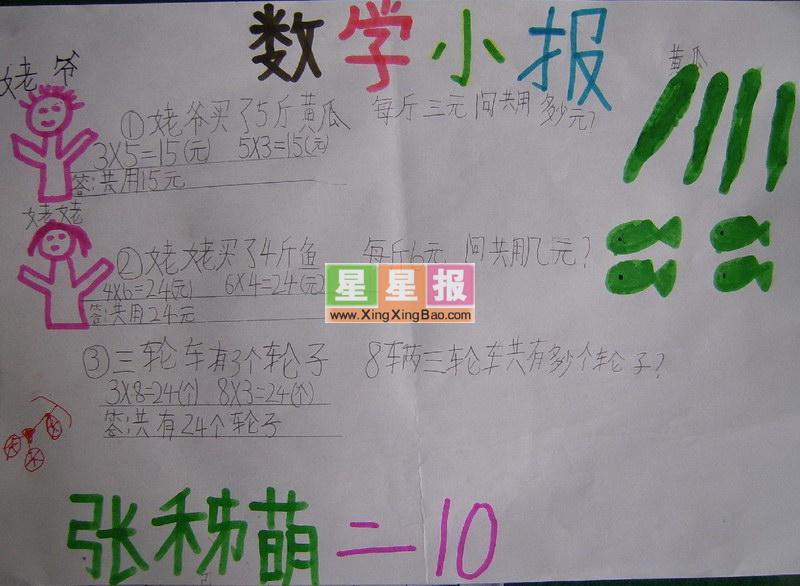 数学小报
姥爷
黄瓜
①姥爷买了5斤黄瓜 每斤三元 问共用多少元?
3×5=15(元) 5×3=15(元)
答:共用15元
姥姥
②姥姥买了4斤鱼 每斤6元 问共用几元?
4×6=24(元) 6×4=24(元)
答:共用24元
星星报
www.XingXingBao.com
③三轮车有3个轮子 8车两三轮车共有多少个轮子?
3×8=24(个) 8×3=24(个)
答:共有24个轮子
张 萌 二10